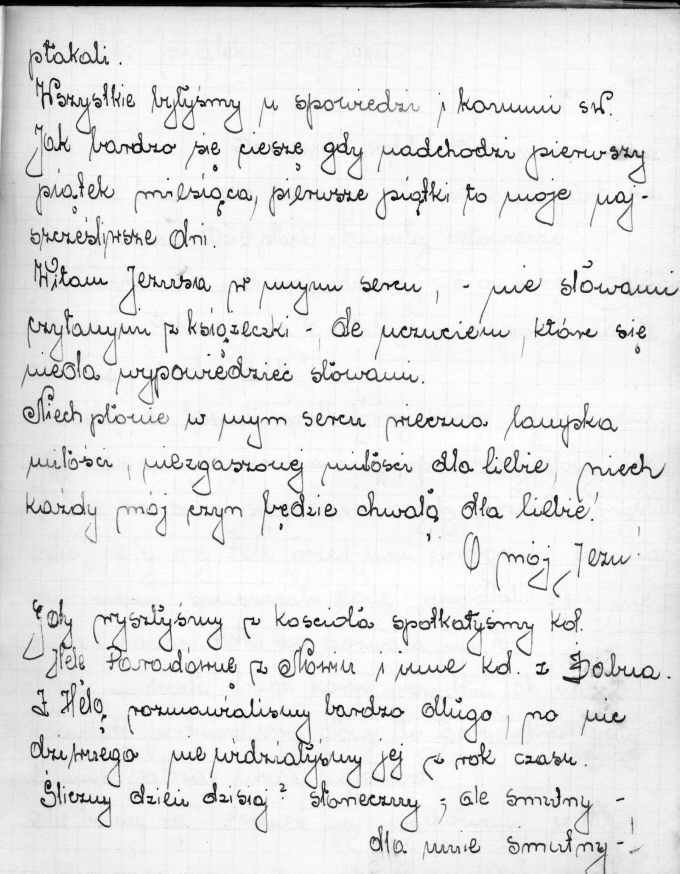 płakali.
Wszystkie byłyśmy u spowiedzi i komunii św.
Jak bardzo się cieszę gdy nadchodzi pierwszy
piątek miesiąca, pierwsze piątki to moje naj-
szcześliwsze dni.
Witam Jezusa w mym sercu, - nie słowami
czytanymi z książeczki -, ale uczuciem, które się
nieda wypowiedzieć słowami.
Niech płonie w mym sercu wieczna lampka
miłości, niezgaszonej miłości dla Ciebie, niech
każdy mój czyn będzie chwałą dla Ciebie!
O mój Jezu!
Gdy wyszłyśmy z kościoła spotkałyśmy kol.
Helę z i inne kol. z Żabna.
Z Helą rozmawialismy bardzo długo, no nic
dziwnego nie widziałyśmy jej z rok czasu.
Śliczny dzień dzisiaj? słoneczny, ale smutny -
dla mnie smutny -!